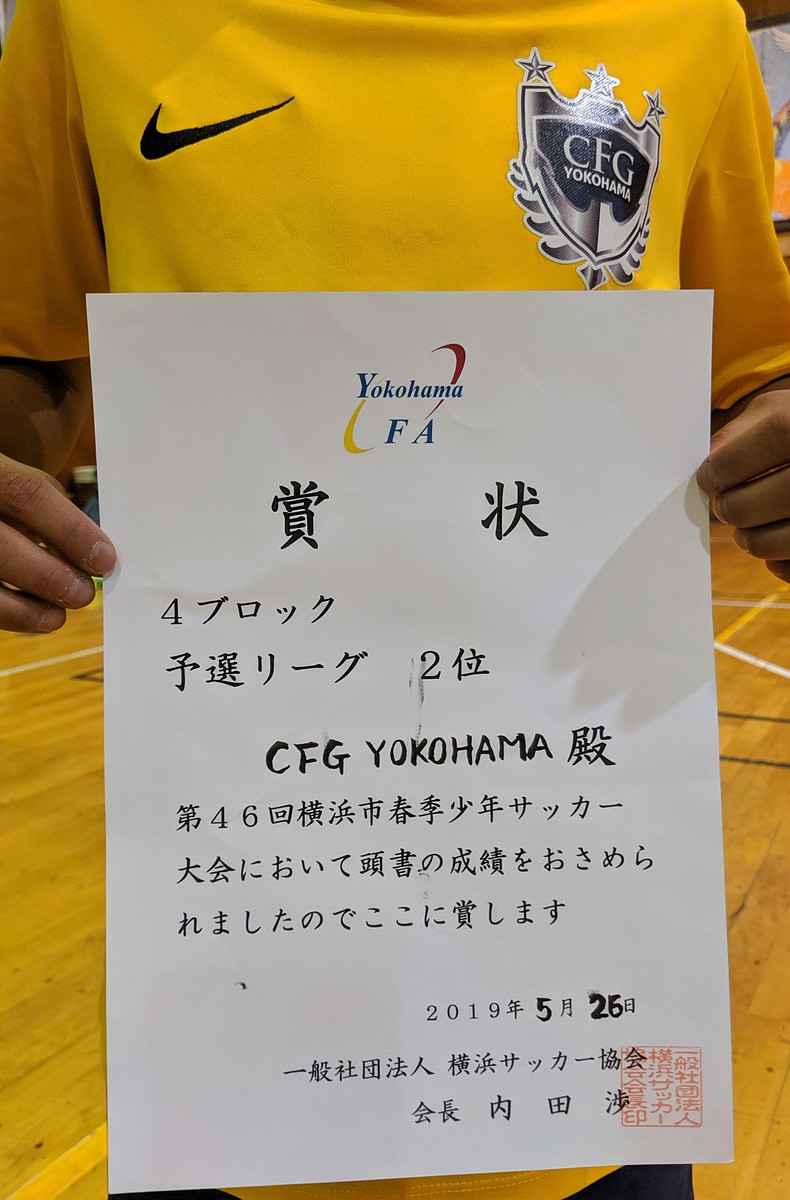 CFG
YOKOHAMA
Yokohama
FA
賞 状
4ブロック
予選リーグ 2位
CFG YOKOHAMA 殿
第46回横浜市春季少年サッカー
大会において頭書の成績をおさめら
れましたのでここに賞します
2019年 5月 26日
一般社団法人 横浜サッカー協会
会長 内 田 渉
一般社団法人
横浜サッカー
協会会長印